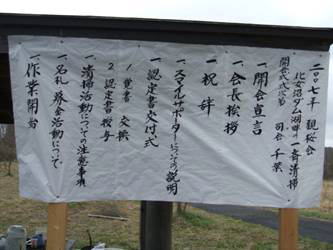 二〇〇七年 観桜会
化女沼ダム湖畔の一斉清掃
開会式次第 司会 千葉
一、開会宣言
一、会長挨拶
一、祝辞
一、スマイルサポーターについての説明
一、認定書交付式
1 覚書 交換
2 認定書授与
一、清掃活動についての注意事項
一、名札 募金活動について
一、作業開始